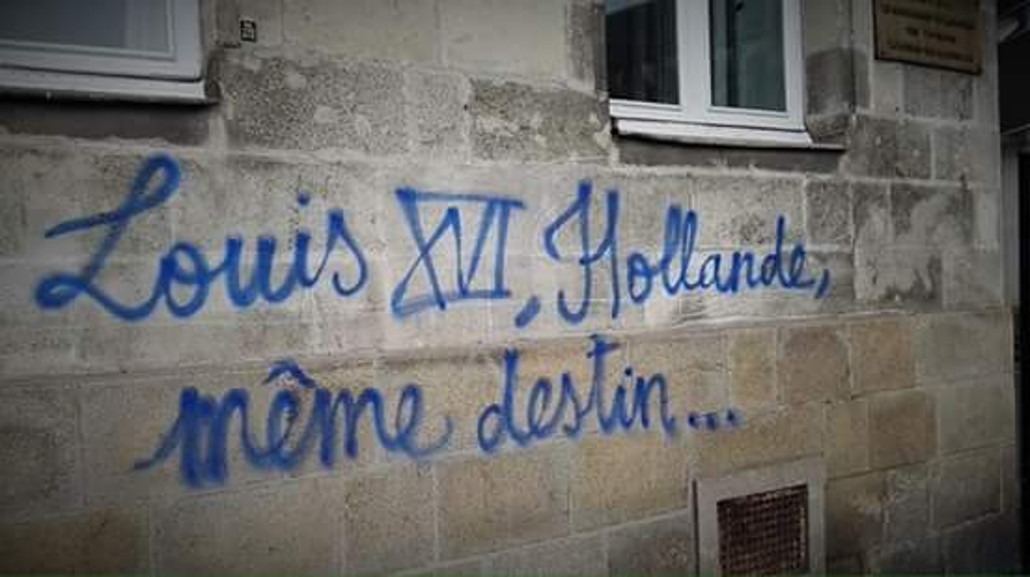 Louis XVI, Hollande,
même destin...